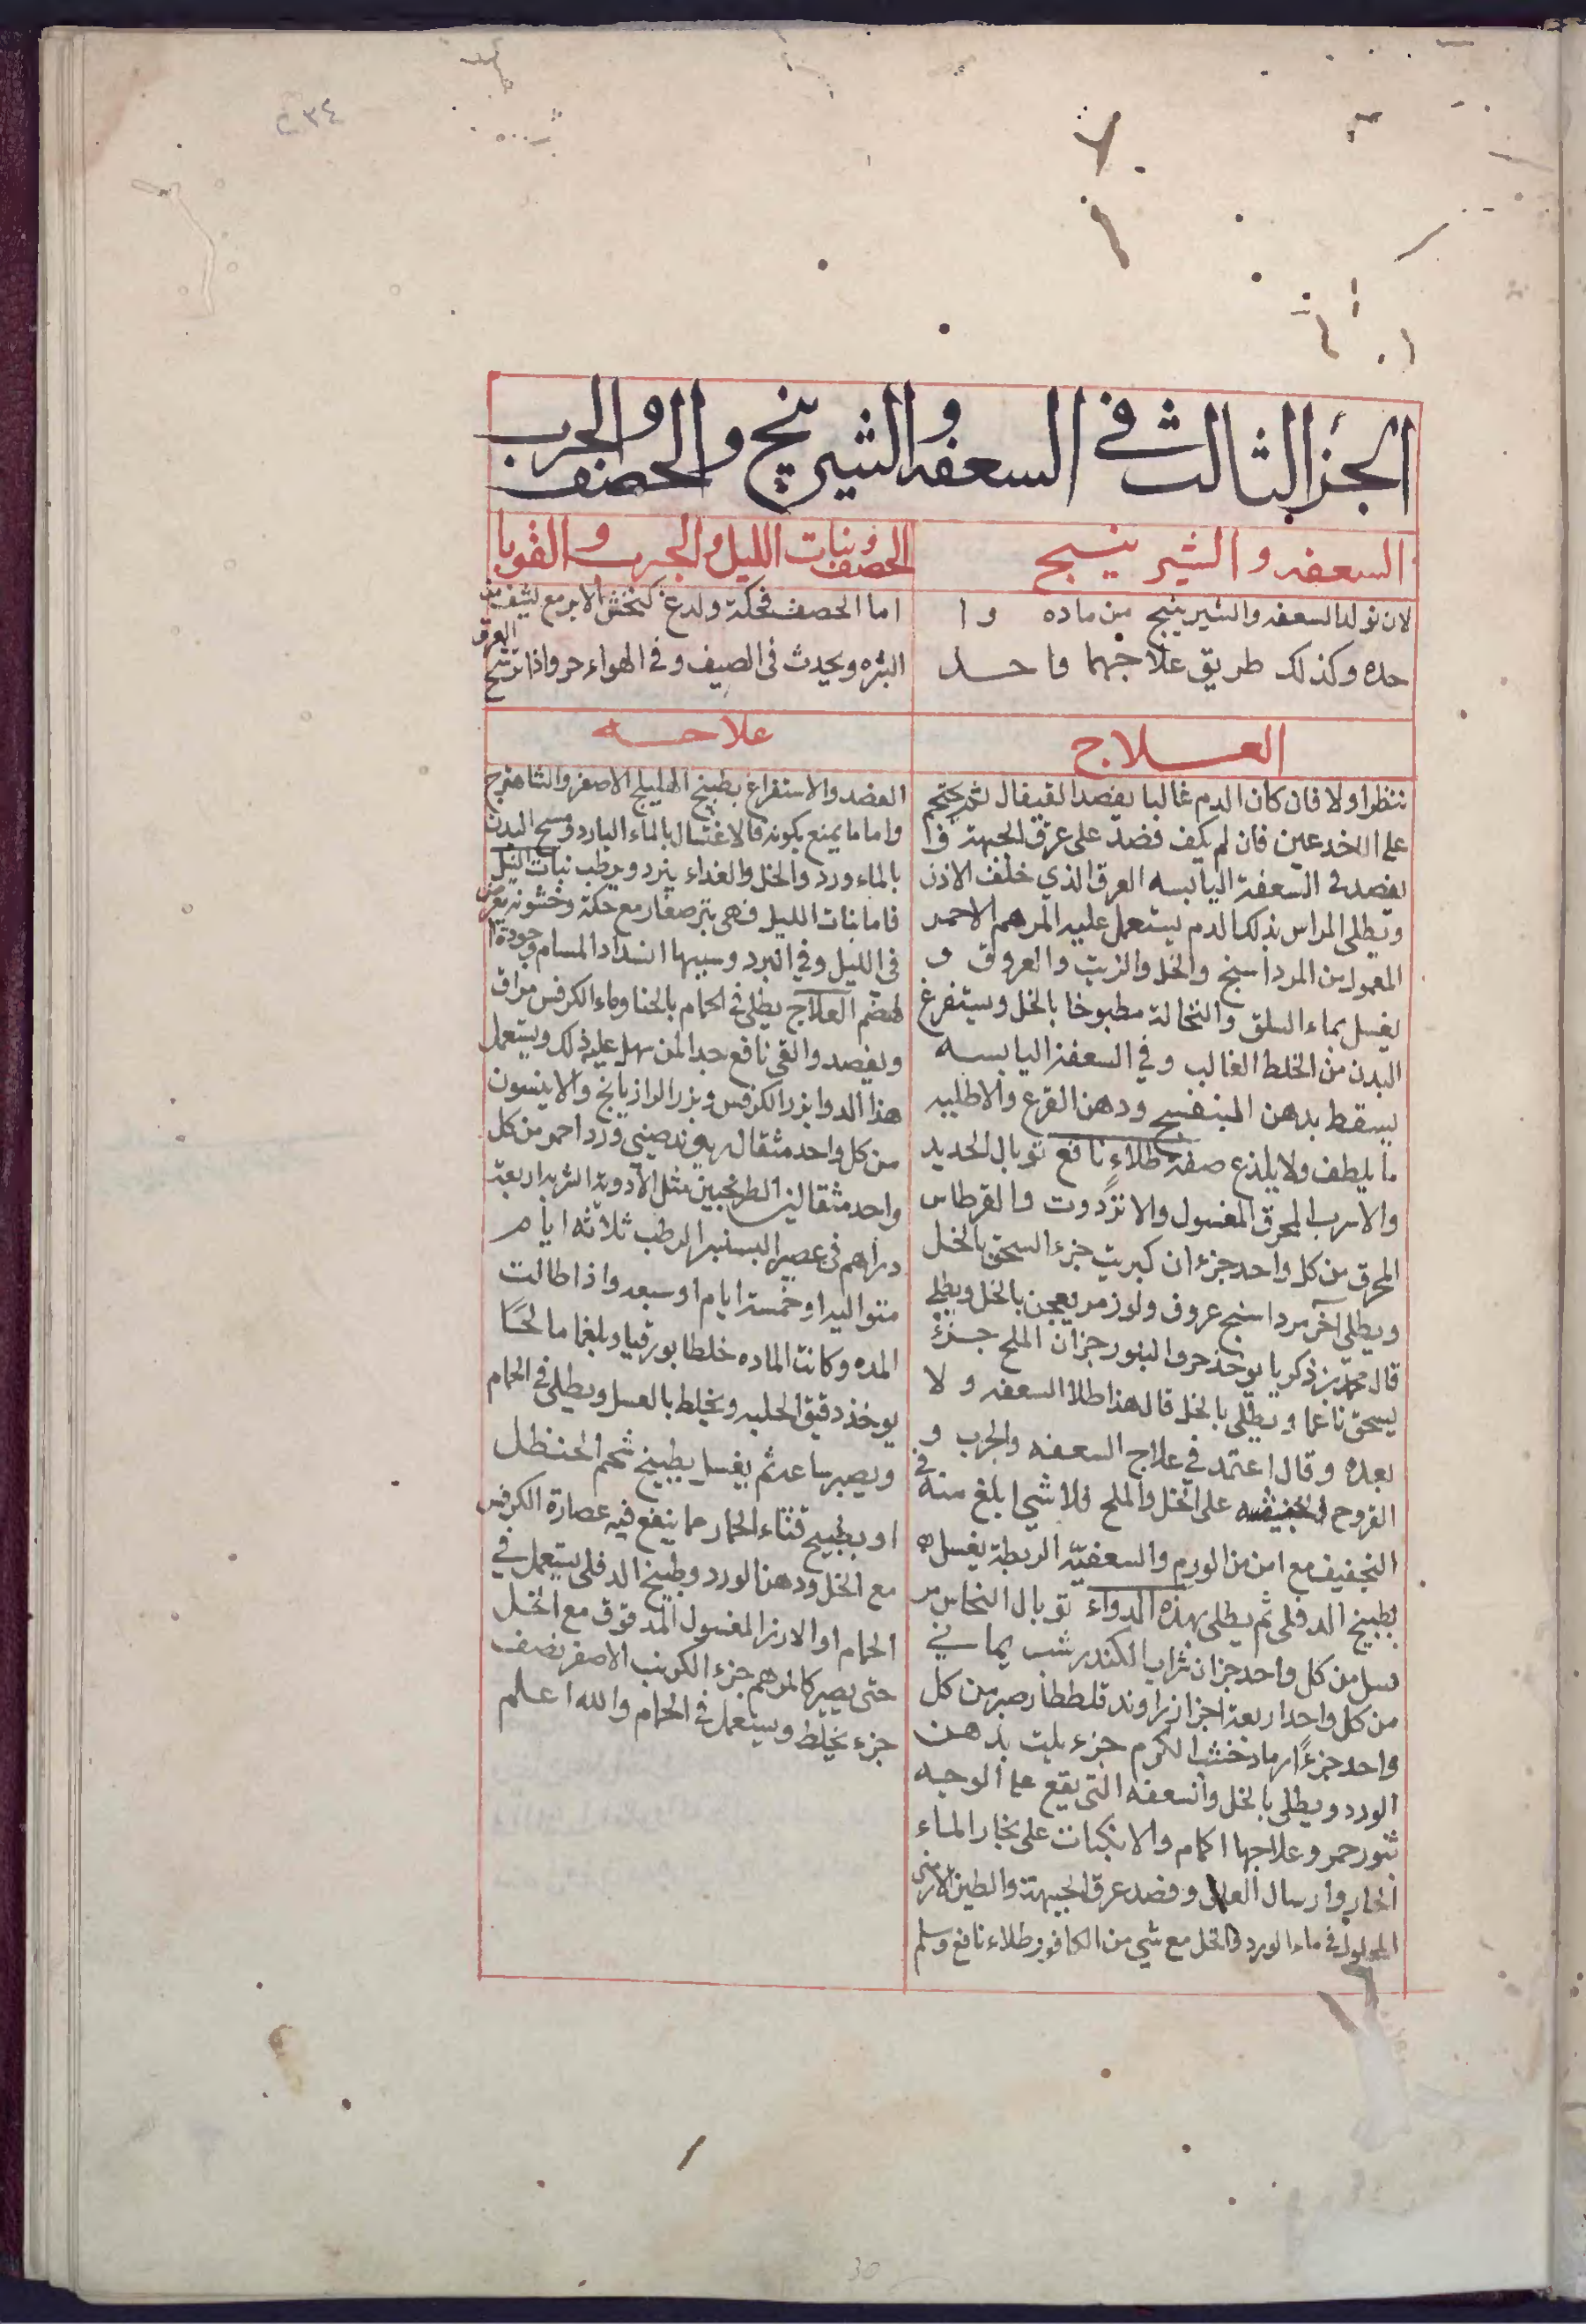 ٤٣٤
الجزالثالث في السعفه والشيرينج والحصف والجرب
السعفه والشيرينج
لان تولد السعفه والشيرينج من ماده وا
حده وكذلك طريق علاجهما واحد
العلاج
ننظر اولا فان كان الدم غالبا يفصد القيفال ثم يحتجم
على الاخدعين فان لم يكف فصد على عرق الجبهة وا
يفصد في السعفة اليابسه العرق الذي خلف الاذن
ويطلى الراس بذلك الدم يستعمل عليه المرهم الاحمر
المعمول من المرداسنج والخل والزيت والعروق و
يغسل بماء السلق والنخالة مطبوخا بالخل ويستفرغ
البدن من الخلط الغالب وفي السعفة اليابسه
يسقط بدهن البنفسج ودهن القرع والاطليه
ما يلطف ولا يلذع صفة طلاء نافع توبال الحديد
والاسرب المحرق المغسول والانزروت والقرطاس
المحرق من كل واحد جزءان كبريت جزء السحق بالخل
ويطلى آخر مرداسنج عروق ولوز مر يعجن بالخل ويطلى
قال محمد بن زكريا يوخذ حروا لبنور جزان الملح جزء
يسحق ناعما ويطلى بالخل قال هذا طلا السعفه ولا
بعده وقال اعتمد في علاج السعفه والجرب و
القروح على الخل والملح فلا شيء ابلغ منه في
التجفيف مع امن من الورم والسعفيّه الرطبة يغسل
بطبيخ الدفلى ثم يطلى بهذه الدواء توبال النحاس مر
من كل واحد جزان تراب الكندر شب يماني
من كل واحد اربعة اجزا زراوند صبر من كل
واحد جزءًا رماد خشب الكرم جزء يلت بدهن
الورد ويطلى بالخل والسعفه التي يقع على الوجه
بثور حمر وعلاجها الحمام والانكباب على بخار الماء
الحار وارسال العلق وفصد عرق الجبهة والطين الارمني
المحلول في ماء الورد والخل مع شي من الكافور طلاء نافع وسلم
الحصف وبنات الليل والجرب والقوبا
اما الحصف فحكة ولدع كنخش الابر مع
البثره ويحدث في الصيف وفي الهواء حر واذا ترشح العرق
علاجه
الفصد والاستفراغ بطبيخ الهليلج الاصفر والشاهترج
واما ما يمنع بكونه فالاغتسال بالماء البارد ومسح البدن
بالماء ورد والخل والغداء يبرد ويرطب نبات الليل
فاما بنات الليل فهي بثر صغار مع حكة وخشونه يعرض
في الليل وفي البرد وسببها انسداد المسام وجودة ا
لهضم العلاج يطلى في الحمام بالحنا وماء الكرفس مراق
ويفصد والقي نافع جدا لمن سهل عليه ذلك ويستعمل
هذا الدوا بزر الكرفس وبزر الرازيانج والانيسون
من كل واحد مثقال ريوند صيني ورد احمر من كل
واحد مثقالين الطرنجبين مثل الادوية الشربة اربعة
دراهم في عصير الرطب ثلاثه ايام
متواليه او خمسة ايام او سبعه واذا طالت
المده وكانت الماده خلطا بورقيا وبلغما مالحًا
يوخذ دقيق الحلبه ويخلط بالعسل ويطلى في الحمام
ويصبر ساعة ثم يغسل بطبيخ شحم الحنظل
او بطبيخ قثاء الحمار مما ينفع فيه عصارة الكرفس
مع الخل ودهن الورد وطبيخ الدفلى يستعمل في
الحمام او الارز المغسول المدقوق مع الخل
حتى يصير كالمرهم جزء الاصفر نصف
جزء يخلط ويستعمل في الحمام والله اعلم
30